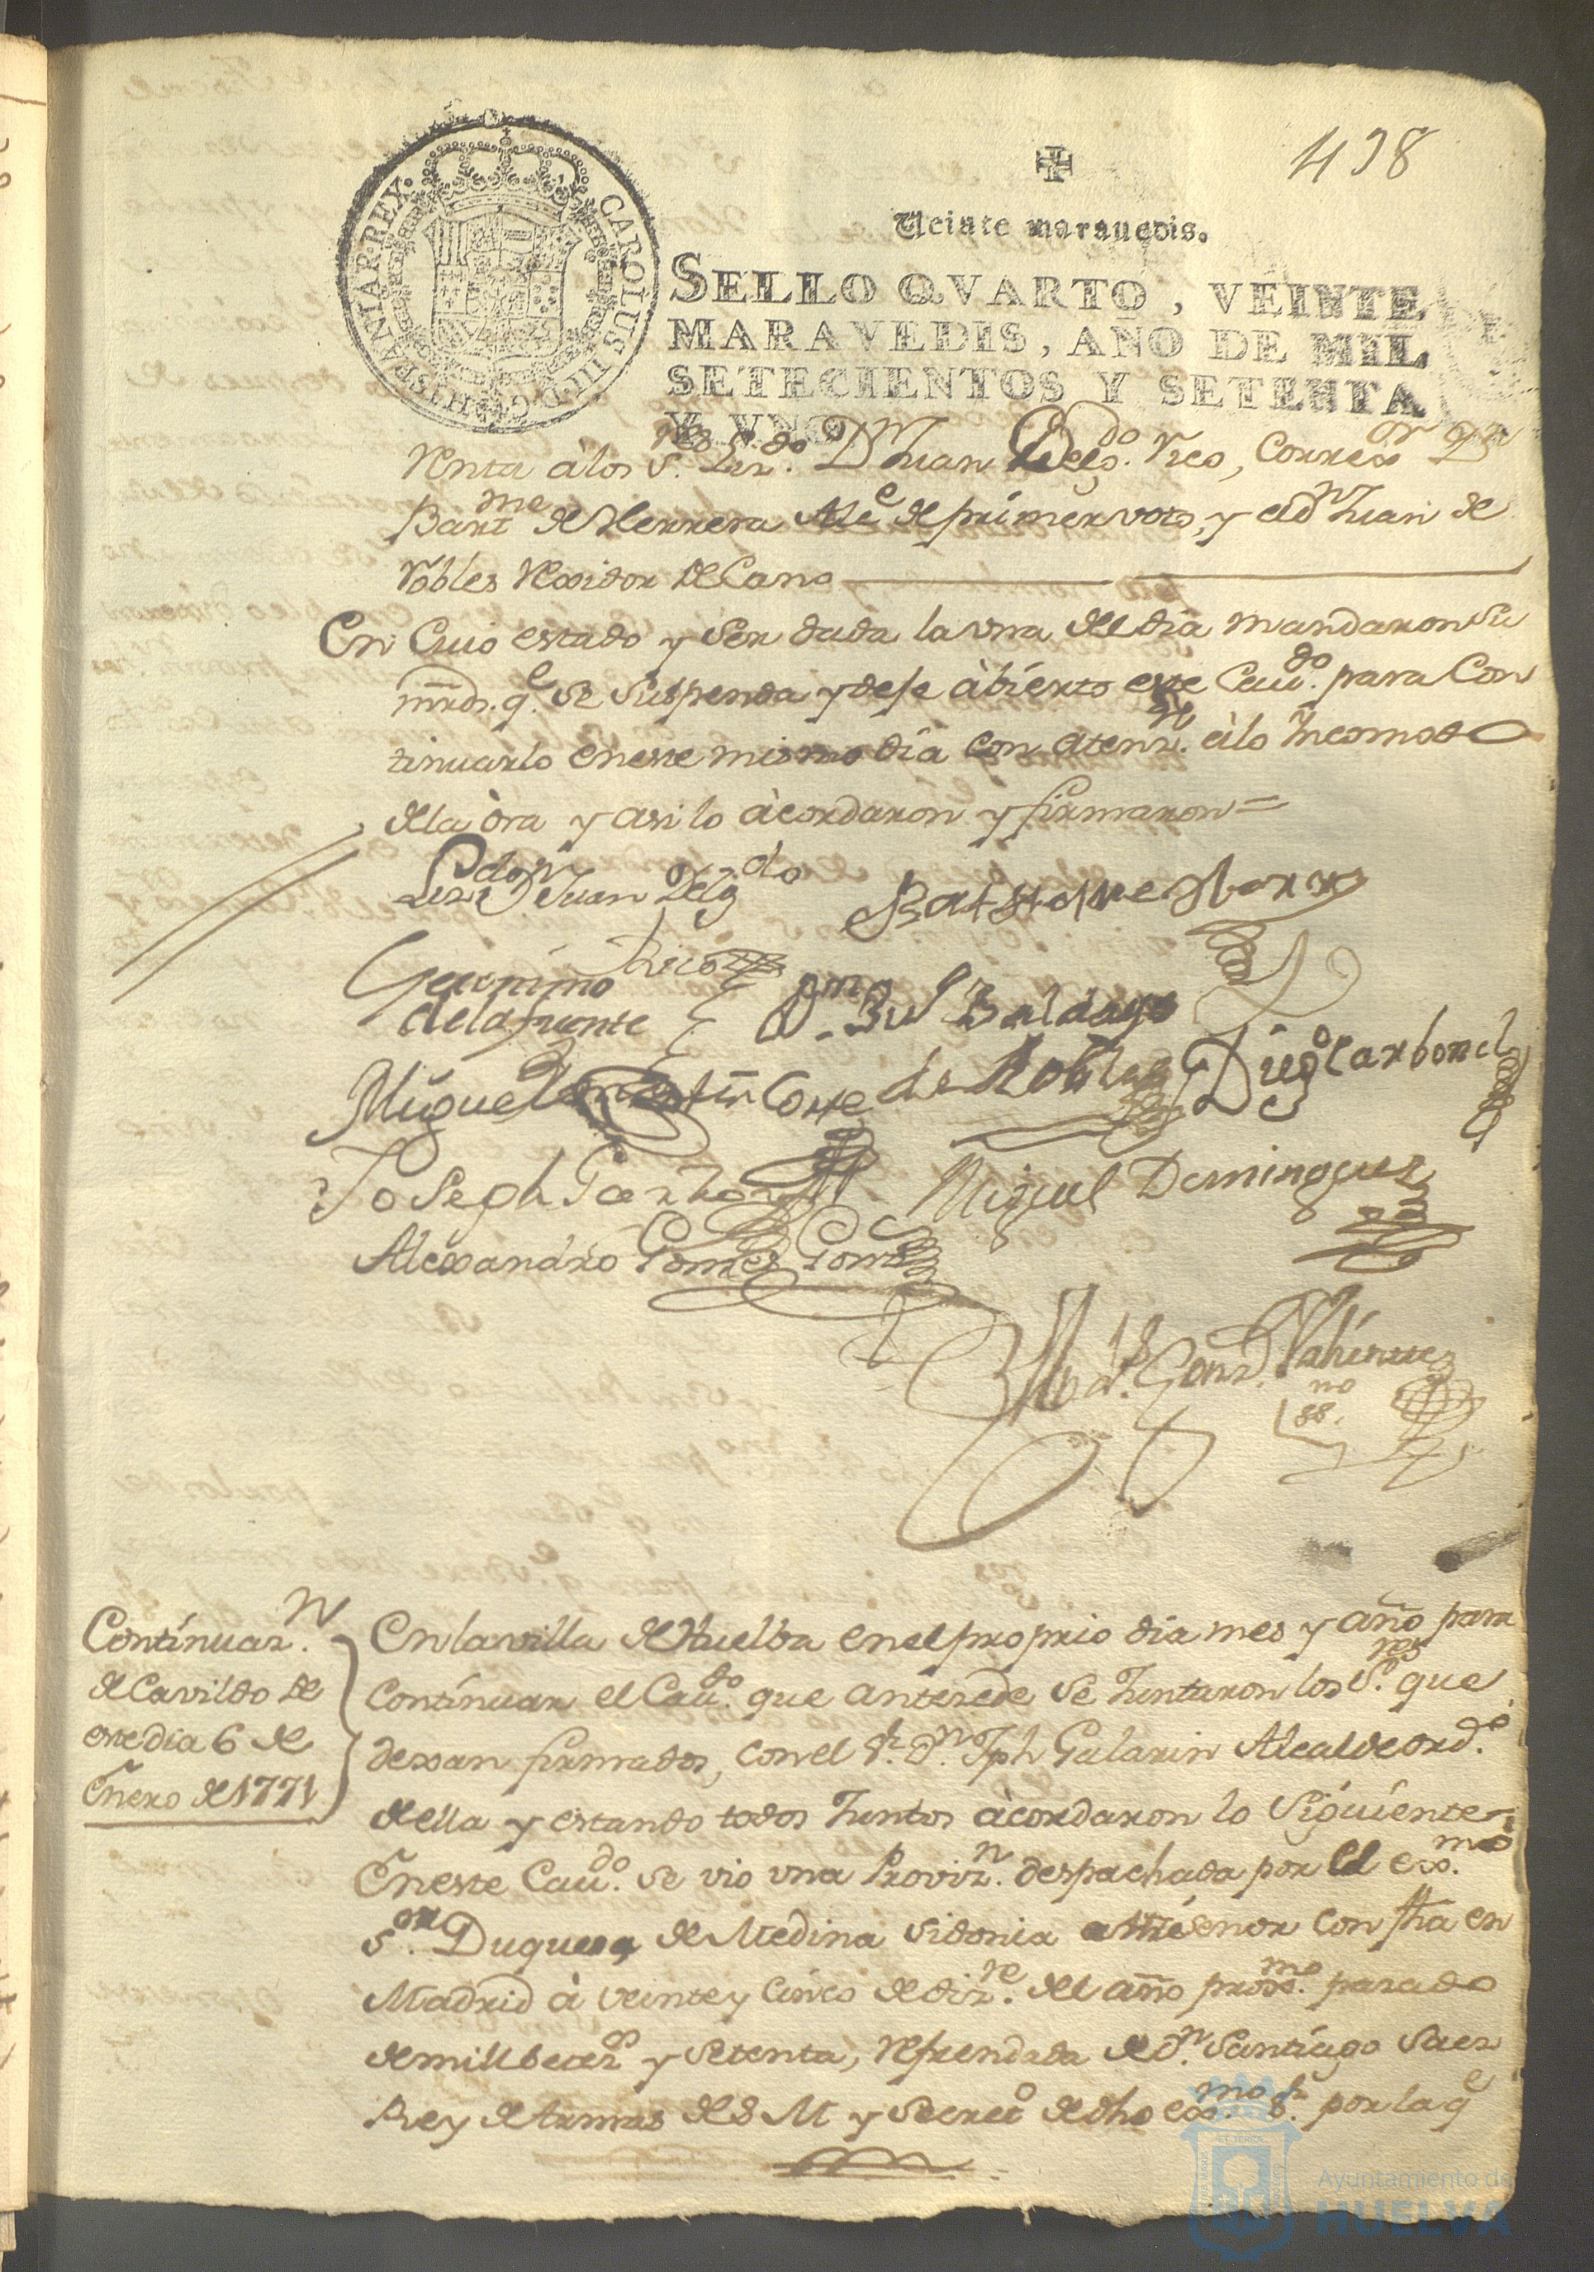 438
CAROLUS III D G HISPANIAR REX
Veinte marauedis.
SELLO QVARTO, VEINTE
MARAVEDIS, AÑO DE MIL
SETECIENTOS Y SETENTA
Y VNO
Venta àlos S.res Liz.do Dn Juan Delg.do Rico, Correx.or Dn
Bart.me de Herrera Alc.e de primer voto, y a Dn Juan de
Robles Rexidor Decano
En Cuio estado y Ser dada la vna del dia mandaron Su
mrds. q.e se suspenda y dese àbierto este Cau.do para Con
tinuarlo en este mismo dia con atenz.n àlo Yncomodo
dela òra y asi lo àcordaron y firmaron =
Liz.do Dn Juan Delg.do
Rico
Geronimo
dela fuente
Miguel
de Robles
Diego Carbonel
Joseph
Miguel Dominguez
Alexandro Gomez
Continuaz.n
de Cavildo de
este dia 6 de
Enero de 1771
En la villa de Huelba en el proprio dia mes y año para
Continuar el Cau.do que antezede se Juntaron los S.res que
dexan firmados, con el S.r Dn Jph Galarin Alcalde ord.o
de ella y estando todos Juntos àcordaron lo Siguiente
En este Cau.do se vio vna Proviz.n despachada por el exmo
S.or Duque de Medina Sidonia mi Señor con fha en
Madrid à veinte y Cinco de diz.re del año prox.mo pasado
de mill setez.os y setenta, refrendada de Dn Santiago Saez
Rey de Armas de S M y Secret.o de dho exmo S.r por la q.e
Ayuntamiento de
HUELVA